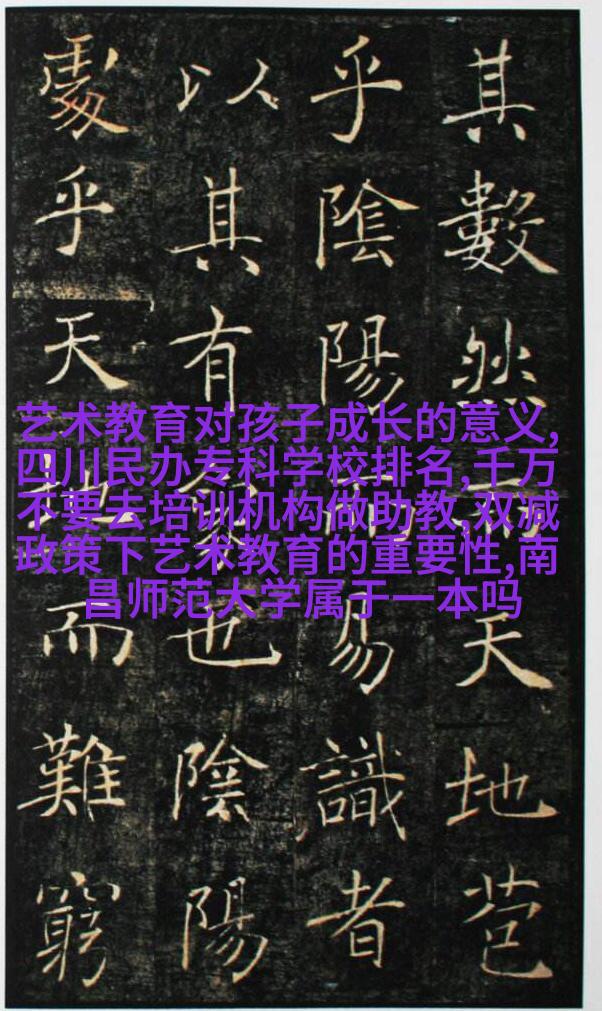 其數然而天地苞
乎陰陽而易識者
以其有象也陰陽
處乎天地而難窮
艺术教育对孩子成长的意义,
四川民办专科学校排名,千万
不要去培训机构做助教,双减
政策下艺术教育的重要性,南
昌师范大学属于一本吗